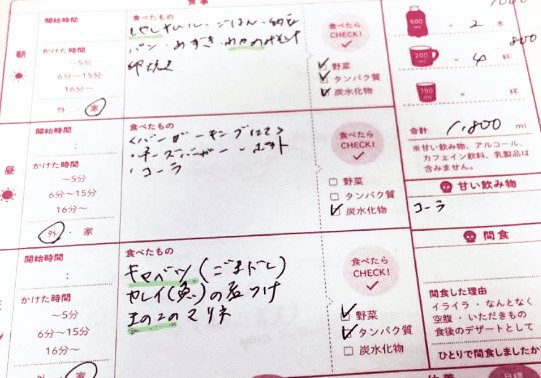 食事
開始時間
:
かけた時間
～5分
6分～15分
16分～
外・家
朝
食べたもの
ごはん・納豆
パン・
卵焼き
食べたら
CHECK!
野菜
タンパク質
炭水化物
600
ml
× 2 本
200
ml
× 4 杯
800
150
ml
× 杯
合計 1,800 ml
※甘い飲み物、アルコール、
カフェイン飲料、乳製品は
含みません。
昼
開始時間
:
かけた時間
～5分
6分～15分
16分～
外・家
食べたもの
<バーガーキングにて>
・チーズバーガー
・コーラ
食べたら
CHECK!
野菜
タンパク質
炭水化物
甘い飲み物
コーラ
間食
開始時間
:
かけた時間
～5分
6分～15分
16分～
外・家
食べたもの
キャベツ(ごまだし)
カレイ(魚)の煮つけ
きのこのマリネ
食べたら
CHECK!
野菜
タンパク質
炭水化物
間食した理由
イライラ・なんとなく
空腹・いただきもの
食後のデザートとして
ひとりで間食しましたか